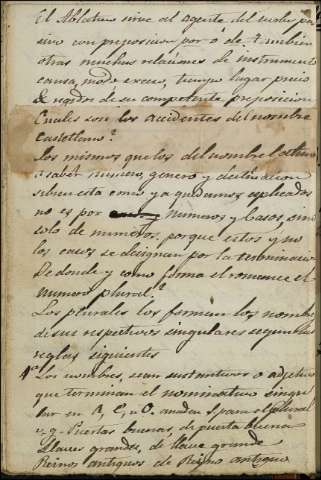 El Ablativo sirve al agente del verbo pa
sivo con preposicion por ó de. Tambien
otras muchas relaciones de instrumento
causa, modo exceso, tiempo lugar precio
& regidos de su competente preposicion
Cuales son los accidentes del nombre
Castellano?
Los mismos que los del nombre latino
a saber numero, genero y declinacion
si bien esta como ya quedamos esplicados
no es por numeros y casos sino
solo de numeros, porque estos y no
los casos se designan por la terminacion
De donde y como forma el romance el
numero plural?
Los plurales los forman los nombres
de sus respectivos singulares segun las
reglas siguientes
1ª Los nombres, sean sustantivos o adjetivos
que terminan el nominativo singu
lar en A, E, u O. anaden S para el plural
v, g. Puertas buenas, de puerta buena
Llaves grandes, de llave grande
Reinos antiguos de Reino antiguo